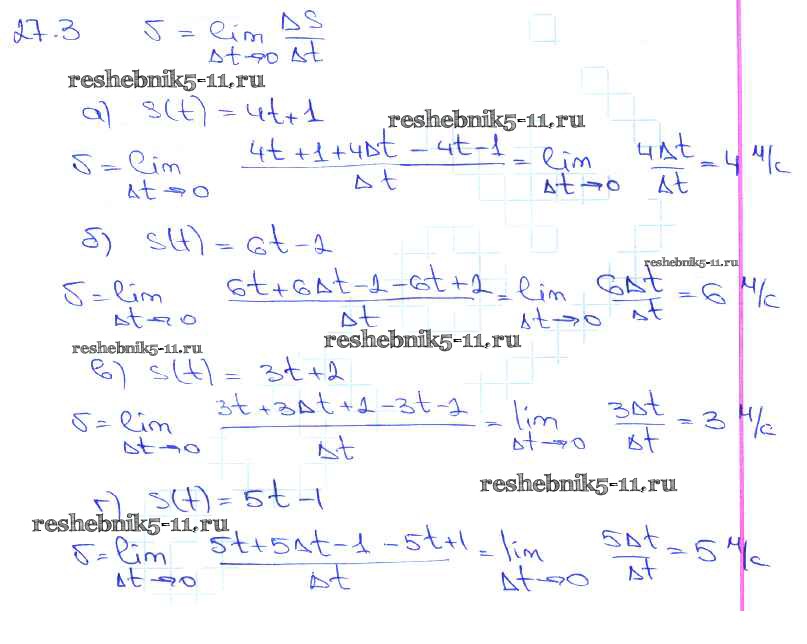 27.3 υ = lim Δt→0 ΔS/Δt
reshebnik5-11.ru
а) S(t) = 4t+1
reshebnik5-11.ru
υ = lim Δt→0 (4t+1+4Δt-4t-1)/Δt = lim Δt→0 4Δt/Δt = 4 м/с
б) S(t) = 6t-2
reshebnik5-11.ru
υ = lim Δt→0 (6t+6Δt-2-6t+2)/Δt = lim Δt→0 6Δt/Δt = 6 м/с
reshebnik5-11.ru
reshebnik5-11.ru
в) S(t) = 3t+2
υ = lim Δt→0 (3t+3Δt+2-3t-2)/Δt = lim Δt→0 3Δt/Δt = 3 м/с
reshebnik5-11.ru
г) S(t) = 5t-1
reshebnik5-11.ru
υ = lim Δt→0 (5t+5Δt-1-5t+1)/Δt = lim Δt→0 5Δt/Δt = 5 м/с